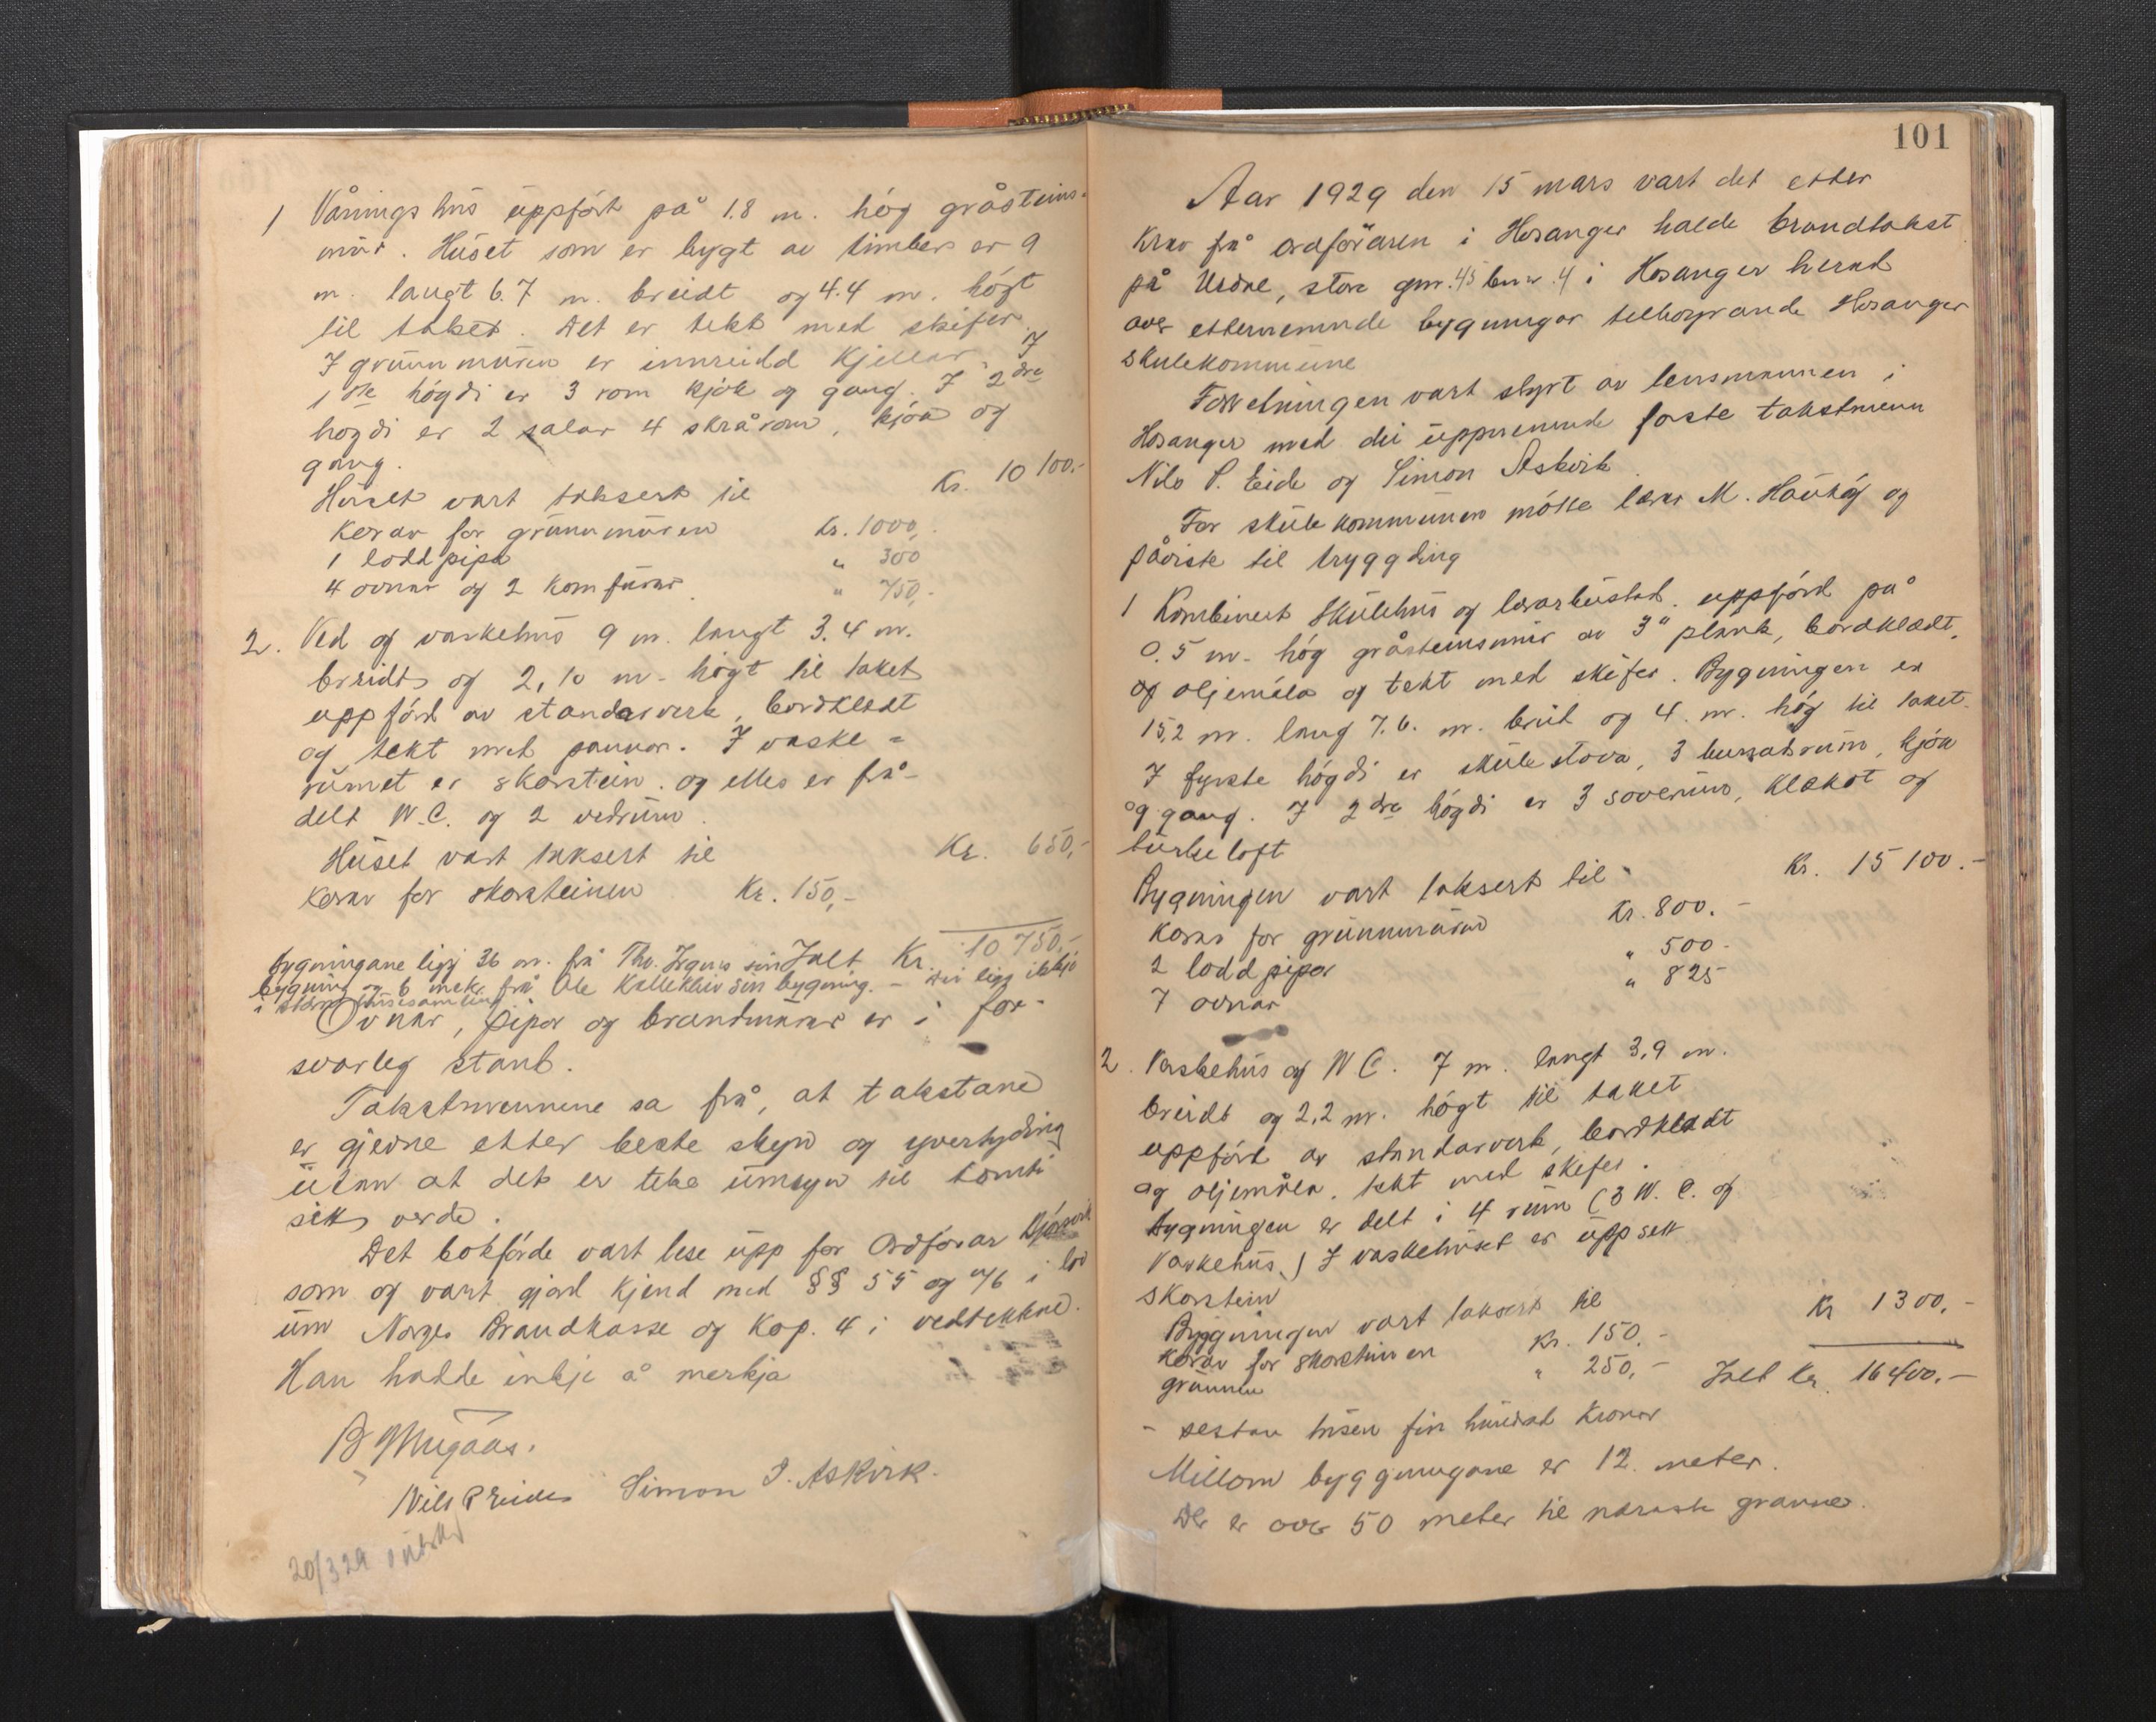 1 Våningshus uppført på 1.8 m. høg gråsteins-
mur. Huset som er bygt av timber er 9
m. langt 6.7 m. breidt og 4.4 m. høgt
til taket. Det er tekt med skifer.
I grunnmuren er innreidd kjellar. I
1ste høgdi er 3 rom kjøk og gang. I 2dre
høgdi er 2 salar 4 skrårom, kjøk og
gang.
Huset vart taksert til Kr. 10 100.-
Kerav for grunnmuren Kr. 1000,-
1 loddpipa " 300
4 ovnar og 2 komfurar " 750,-
2. Ved og vaskehus 9 m. langt 3.4 m.
breidt og 2,10 m. høgt til taket
uppførd av standarverk, bordklædt
og tekt med pannor. I vaske-
rumet er skorstein. og elles er frå-
delt W.C. og 2 vedrum.
Huset vart taksert til Kr. 650,-
Kerav for skorsteinen Kr. 150,-
Ialt Kr. 10 750,-
Bygningane ligg 36 m. frå Tho. sin
bygning og 6 mek. frå Ole Kallekleiv sin bygning. - Dei ligg ikkje
i större hussesamling.
Ovnar, pipor og brandmurar er i for-
svarleg stand.
Takstmennene sa frå, at takstane
er gjevne etter beste skyn og yvertyding
utan at det er teke umsyn til tomti
sitt verde.
Det bokførde vart lese upp for Ordførar
som og vart gjord kjend med §§ 55 og 76 i lov
um Norges Brandkasse og Kap. 4 i vedtektine.
Han hadde inkje å merkja
B Mugaas.
Nils P Eide Simon I. Askvik.
20/3 29
101
Aar 1929 den 15 mars vart det etter
krav frå ordføraren i Hosanger halde brandtakst
på Uedne, store gnr. 45 bnr. 4 i Hosanger herad
over etternemnde bygningar tilhøyrande Hosanger
skulekommune
Forretningen vart styrt av lensmannen i
Hosanger med dei uppnemnde faste takstmenn
Nils P. Eide og Simon Askvik.
For skulekommunen møtte lærar M. Hauhøy og
påviste til tryggding
1 Kombinert skulehus og lærarbustad. uppførd på
0.5 m. høg gråsteinsmur av 3" plank, bordklædt,
og oljemåla og tekt med skifer. Bygningen er
15,2 m. lang 7.6. m. breid og 4. m. høg til taket.
I fyrste høgdi er skulestova, 3 rum, kjøk
og gang. I 2dre høgdi er 3 soverum, klækot og
turkeloft
Bygningen vart taksert til Kr. 15 100.-
Korav for grunnmuren Kr. 800.-
2 loddpipor " 500-
7 ovnar " 825-
2. Vaskehus og W C. 7 m. langt 3,9 m.
breidt og 2,2 m. høgt til taket
uppførd av standarverk, bordklædt
og oljemåla. tekt med skifer.
Bygningen er delt i 4 rum (3 W. C. og
Vaskehus.) I vaskehuset er uppsett
skorstein
Byggningen vart taksert til Kr 1300,-
Korav for skorsteinen Kr. 150.-
grunnen " 250,- Ialt Kr. 16400.-
- sekstan tusen fir hundrad Kronor
Millom byggningane er 12 meter.
Der er over 50 meter til næraste granne.